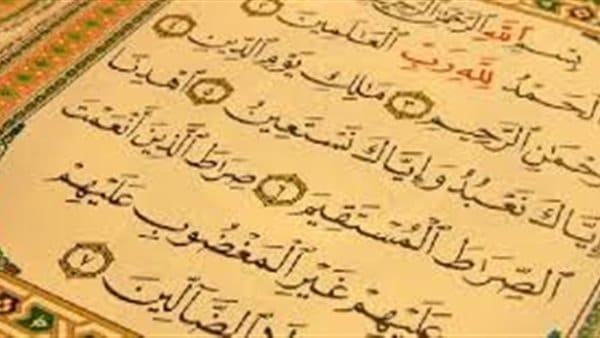 بِسْمِ ٱللَّهِ ٱلرَّحْمَٰنِ ٱلرَّحِيمِ
ٱلْحَمْدُ لِلَّهِ رَبِّ ٱلْعَالَمِينَ ٢
رَّحْمَٰنِ ٱلرَّحِيمِ ٣ مَالِكِ يَوْمِ ٱلدِّينِ ٤
إِيَّاكَ نَعْبُدُ وَإِيَّاكَ نَسْتَعِينُ ٥ ٱهْدِنَا
ٱلصِّرَاطَ ٱلْمُسْتَقِيمَ ٦ صِرَاطَ ٱلَّذِينَ أَنْعَمْتَ
عَلَيْهِمْ غَيْرِ ٱلْمَغْضُوبِ عَلَيْهِمْ
ٱلضَّآلِّينَ ٧